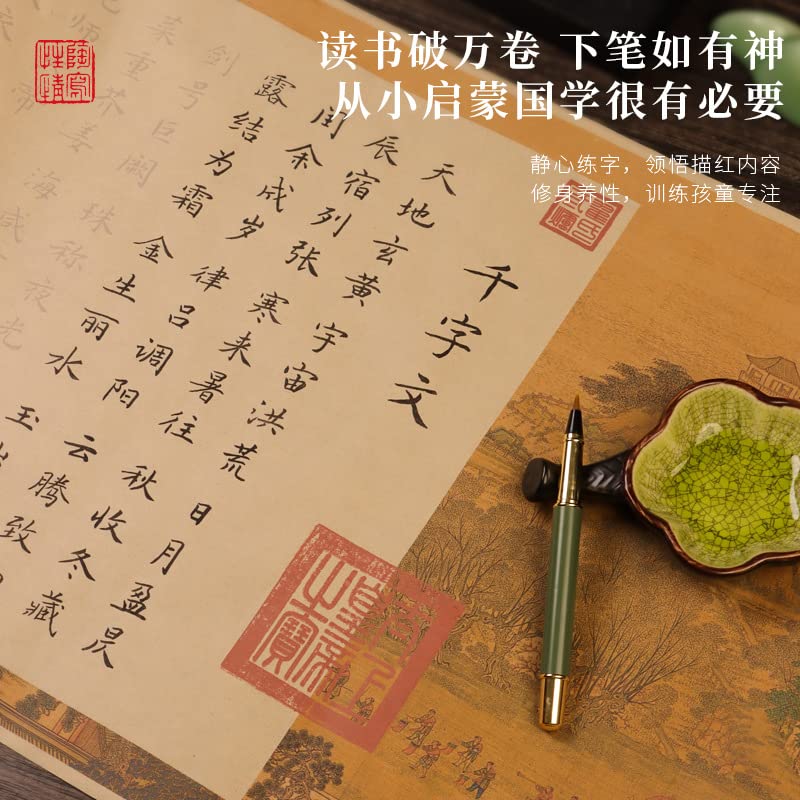 陶寫
性情
读书破万卷 下笔如有神
从小启蒙国学很有必要
静心练字，领悟描红内容
修身养性，训练孩童专注
千字文
天地玄黄 宇宙洪荒 日月盈昃
辰宿列张 寒来暑往 秋收冬藏
闰余成岁 律吕调阳 云腾致
露结为霜 金生丽水 玉出
剑号巨阙 珠称夜光
菜重芥姜 海咸